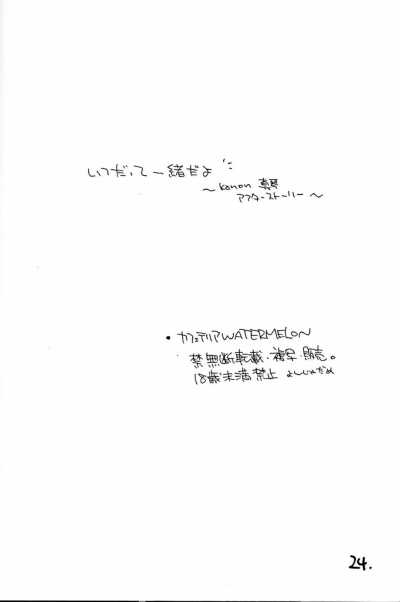 いつだって一緒だよ
～ kanon 真琴
アフターストーリー ～
• カフェテリアWATERMELON
禁無断転載・複写・販売。
18歳未満禁止
24.